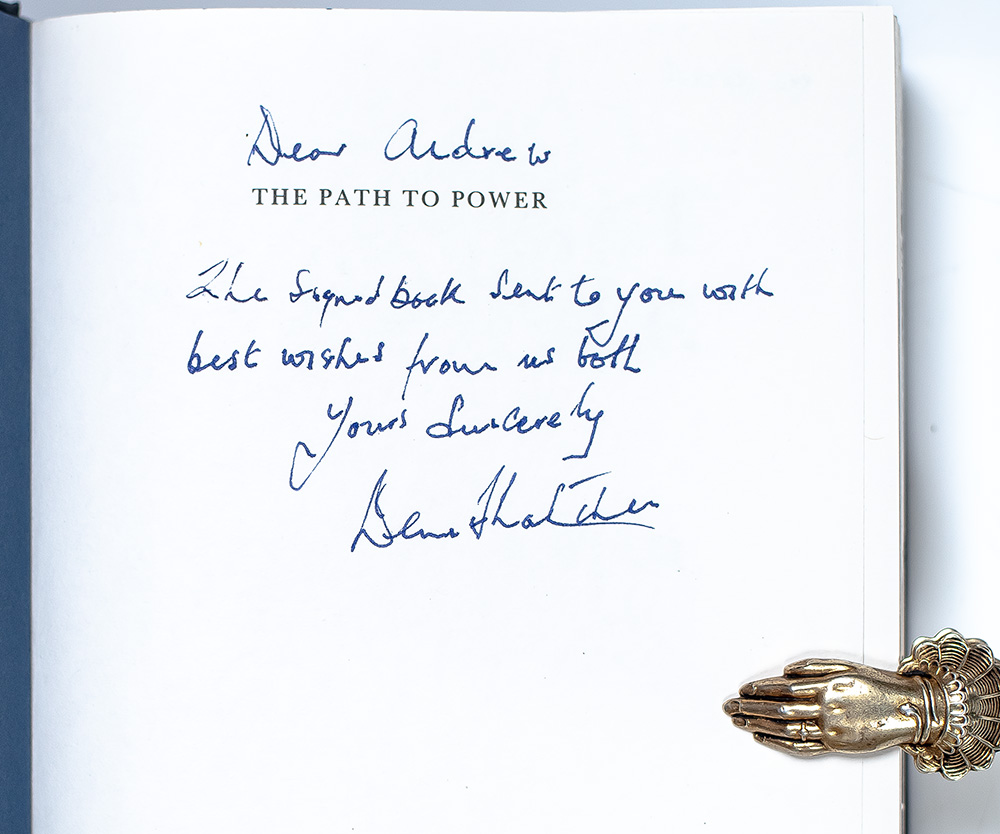 Dear Andrew
THE PATH TO POWER
The signed book sent to you with
best wishes from us both
Yours Sincerely
Denis Thatcher